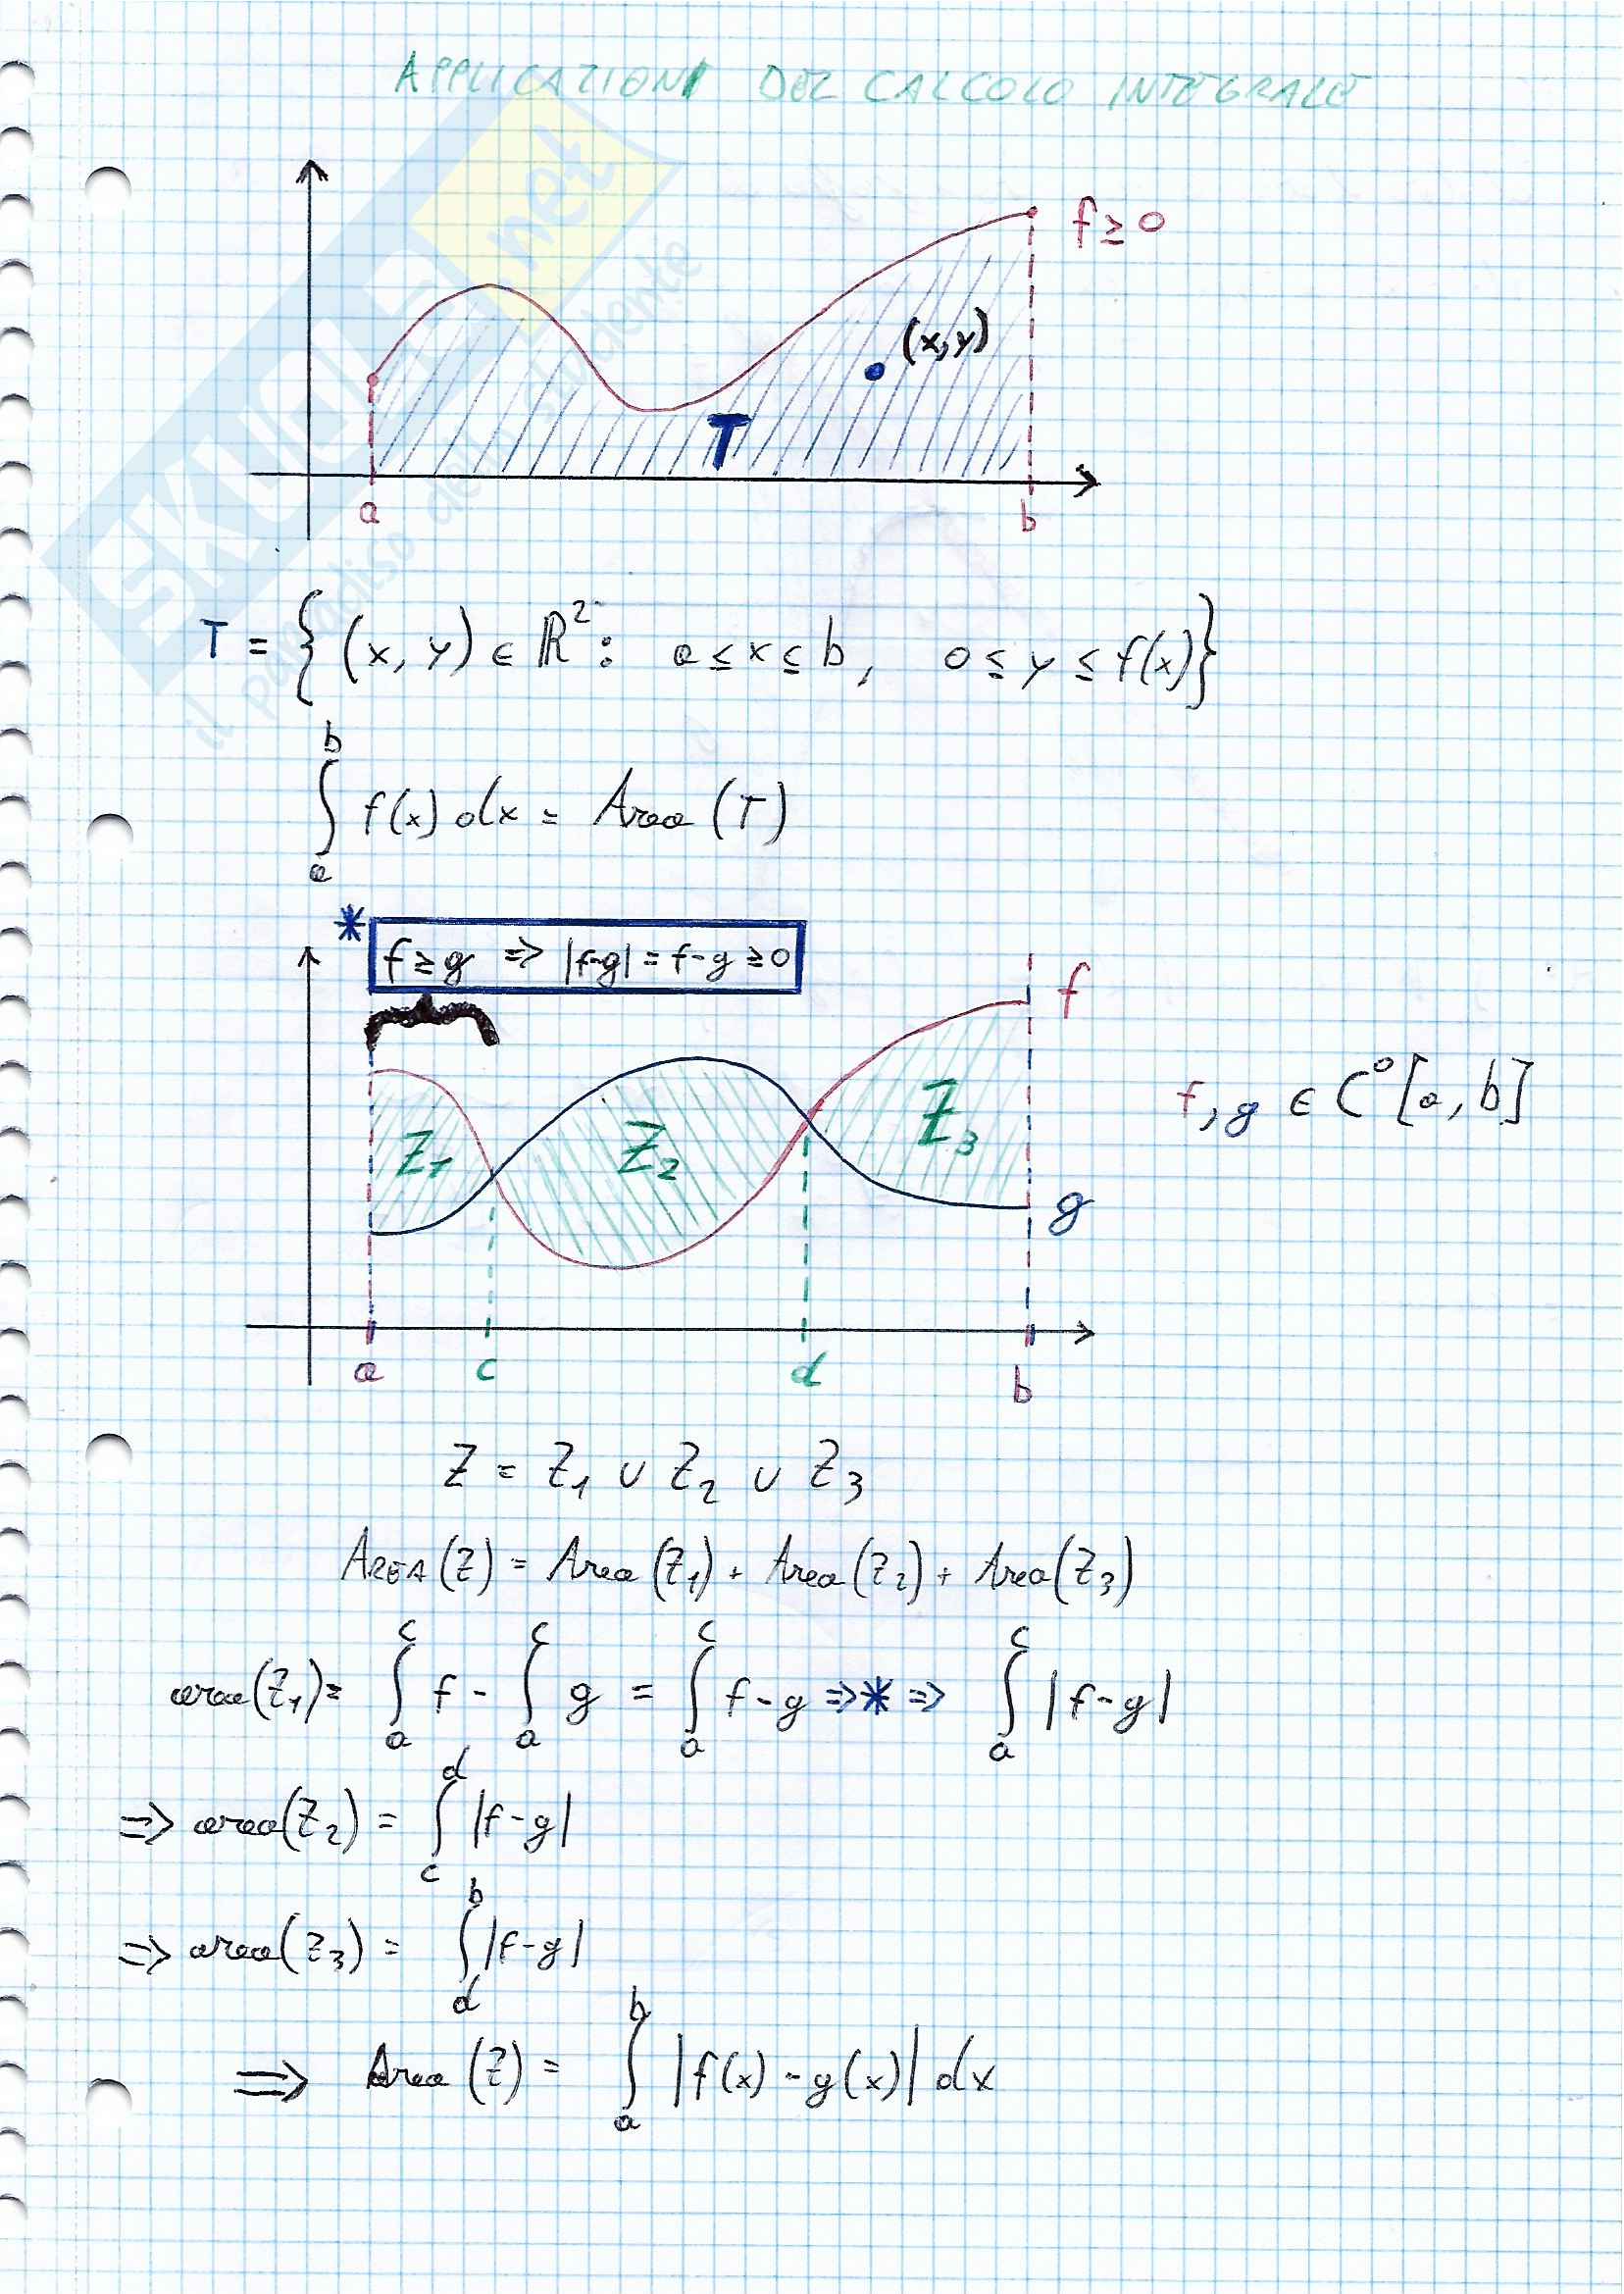 APPLICAZIONI DEL CALCOLO INTEGRALE
SKUOLA.net
il paradiso dello studente
f ≥ 0
(x,y)
T
a b
T = { (x, y) ∈ ℝ² : a ≤ x ≤ b, 0 ≤ y ≤ f(x) }
∫_a^b f(x) dx = Area (T)
* f ≥ g ⇒ |f-g| = f-g ≥ 0
f
Z₁ Z₂ Z₃
f, g ∈ C⁰ [a, b]
g
a c d b
Z = Z₁ ∪ Z₂ ∪ Z₃
AREA (Z) = Area (Z₁) + Area (Z₂) + Area (Z₃)
area(Z₁) = ∫_a^c f - ∫_a^c g = ∫_a^c f - g ⇒ * ⇒ ∫_a^c |f-g|
⇒ area(Z₂) = ∫_c^d |f-g|
⇒ area(Z₃) = ∫_d^b |f-g|
⇒ Area (Z) = ∫_a^b |f(x) - g(x)| dx